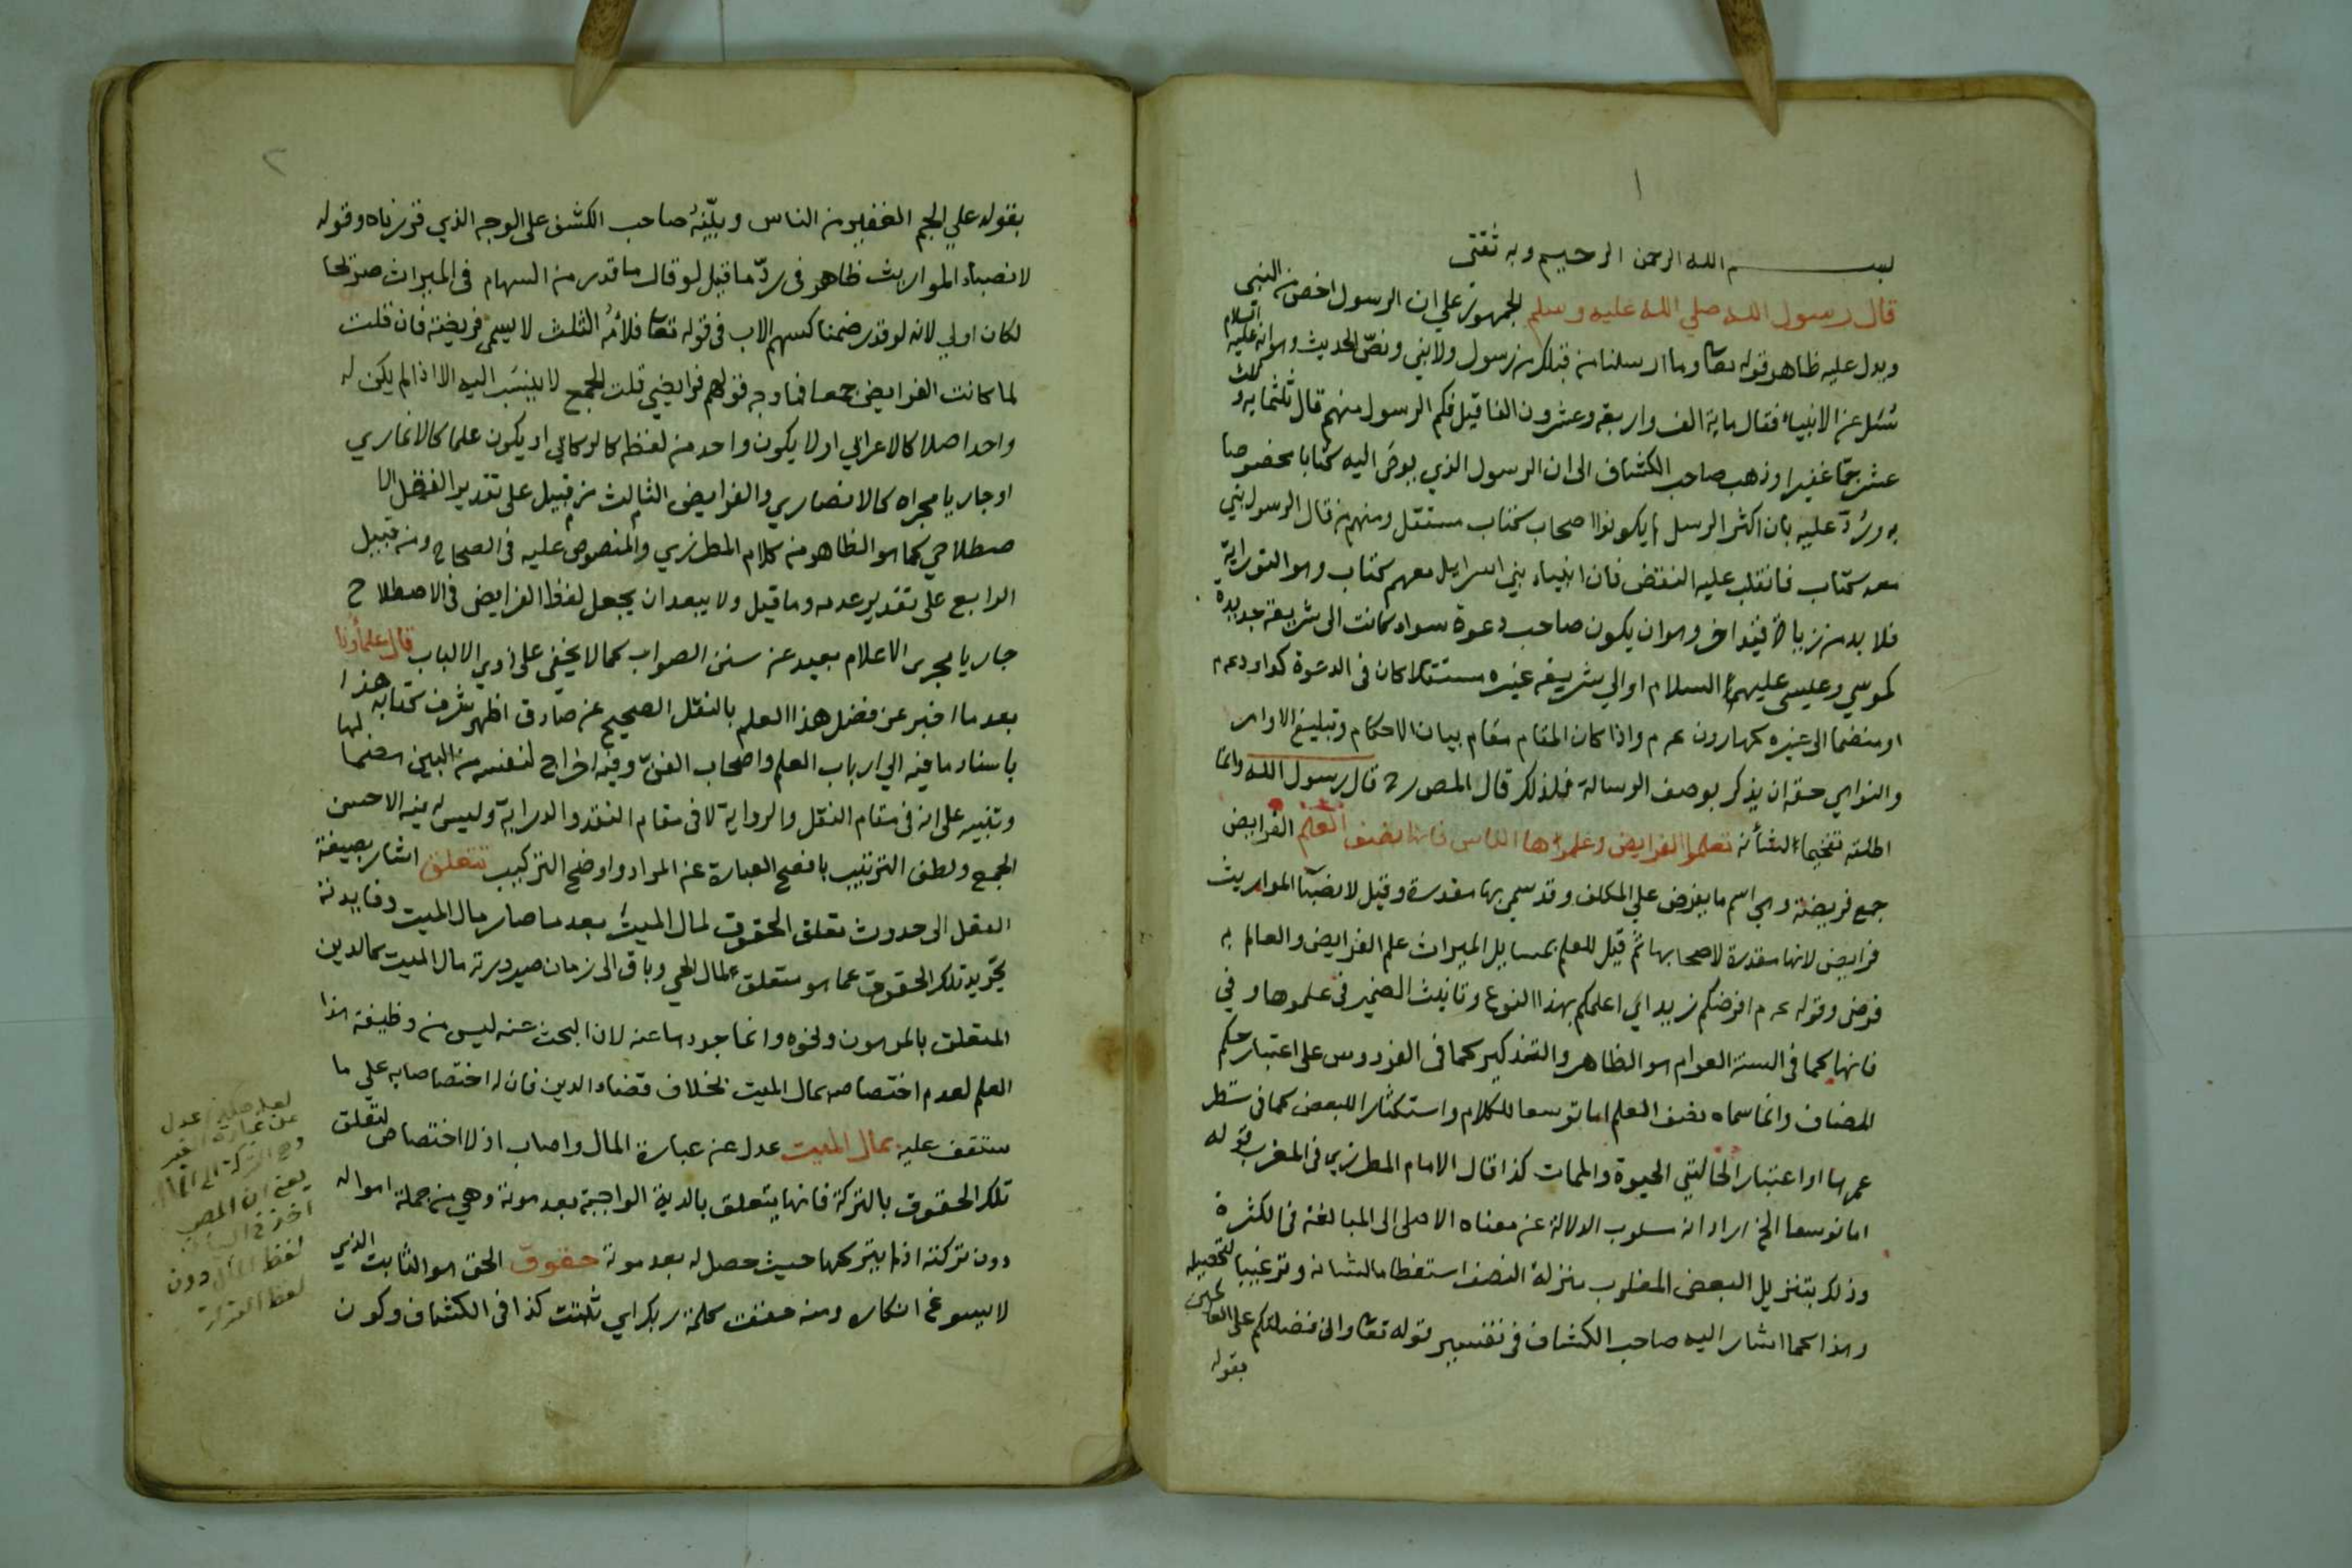 ١
بسم الله الرحمن الرحيم وبه ثقتي
قال رسول الله صلي الله عليه وسلم الجمهور علي ان الرسول اخص من النبي
ويدل عليه ظاهر قوله تعا وما ارسلنا من قبلك من رسول ولا نبي ونص الحديث وهو انه عليه السلام
سئل عن الانبياء فقال ماية الف واربعة وعشرون الفا قيل فكم الرسول منهم قال ثلثماية و ثلث
عشر جمّا غفيرا وذهب صاحب الكشاف الى ان الرسول الذي يوحى اليه كتابا مخصوصا
به وردّ عليه بان اكثر الرسل لم يكونوا اصحاب كتاب مستقل ومنهم من قال الرسول نبي
معه كتاب فانقلب عليه النقض فان انبياء بني اسرايل معهم كتاب وهو التوراية
فلا بد من زيادة قيد اخر وهو ان يكون صاحب دعوة سواء كانت الى شريعة جديدة
كموسي وعيسى عليهما السلام او الي شريعة غيره مستقلا كان في الدعوة كداود عم
او منضما الى غيره كهارون عم واذا كان المقام مقام بيان الاحكام وتبليغ الاوامر
والنواهي حقه ان يذكر بوصف الرسالة فلذلك قال المص رح قال رسول الله وانما
اطلقه تفخيما لشأنه تعلموا الفرايض وعلموها الناس فانها نصف العلم الفرايض
جمع فريضة وهي اسم ما يفرض علي المكلف وقد سمي بها مقدرة وقيل لانصباء المواريث
فرايض لانها مقدرة لاصحابها ثم قيل للعلم بمسايل الميراث علم الفرايض والعالم به
فرضي وقوله عم افرضكم زيد اي اعلمكم بهذا النوع وتانيث الضمير في علموها وفي
فانها كما في السنة العوام هو الظاهر والتذكير كما في الفردوس على اعتبار حكم
المضاف وانما سماه نصف العلم اما توسعا للكلام واستكثارا للبعض كما في شطر
عمرها او اعتبار الحالتي الحيوة والممات كذا قال الامام المطرزي في المغرب قوله
اما توسعا الخ اراد انه مسلوب الدلالة عن معناه الاصلي الى المبالغة في الكثرة
وذلك بتنزيل البعض المغلوب منزلة النصف استعظاما لشانه وترغيبا لتحصيله
وهذا كما اشار اليه صاحب الكشاف في تفسير قوله تعا واني فضلتكم على العالمين
بقوله
٢
بقوله علي الجم الغفير من الناس وبيّنه صاحب الكشف على الوجه الذي قررناه وقوله
لانصباء المواريث ظاهر في ردّ ما قيل لو قال ما قدر من السهام في الميراث صريحا
لكان اولي لانه لو قدر ضمنا كسهم الاب في قوله تعا فلامه الثلث لا يسمى فريضة فان قلت
لما كانت الفرايض جمعا فما وجه قولهم فرايضي قلت الجمع لا ينسب اليه الا اذا لم يكن له
واحد اصلا كالاعرابي او لا يكون واحد من لفظه كالركابي او يكون علما كالانماري
او جاريا مجراه كالانصاري والفرايض الثالث من قبيل على تقدير النقل الا
صطلاحي كما هو الظاهر من كلام المطرزي والمنصوص عليه في الصحاح ومن قبيل
الرابع على تقدير عدمه وما قيل ولا يبعد ان يجعل لفظ الفرايض في الاصطلاح
جاريا مجرى الاعلام بعيد عن سنن الصواب كما لا يخفى على اولي الالباب قال علماؤنا
بعد ما اخبر عن فضل هذا العلم بالنقل الصحيح عن صادق اظهر شرف كتابه هذا
باسناد ما فيه الي ارباب العلم واصحاب الفن وفيه اخراج لنفسه من البين هضما لها
وتنبيه على انه في مقام النقل والرواية لا في مقام النقد والدراية وليس له فيه الا حسن
الجمع ولطف الترتيب بافصح العبارة عن المراد واوضح التركيب تتعلق اشار بصيغة
الفعل الى حدوث تعلق الحقوق لمال الميت بعد ما صار مال الميت وفايدته
تجريد تلك الحقوق عما هو متعلق بمال الحي وباق الى زمان صيرورته مال الميت كالدين
المتعلق بالمرهون ونحوه وانما جردها عنه لان البحث عنه ليس من وظيفة هذا
العلم لعدم اختصاصه بمال الميت بخلاف قضاء الدين فان له اختصاصا به علي ما
ستقف عليه بمال الميت عدل عن عبارة المال واصاب اذ لا اختصاص لتعلق
تلك الحقوق بالتركة فانها يتعلق بالدية الواجبة بعد موته وهي من جملة امواله
دون تركته اذ لم يتركها حيث حصل له بعد موته حقوق الحق هو الثابت الذي
لا يسوغ انكاره ومنه حققت كلمة ربك اي ثبتت كذا في الكشاف وكون
عدل
عن عبارة الغير
وهي التركة الى المال
يعني ان المص
لفظ المال دون
لفظ التركة